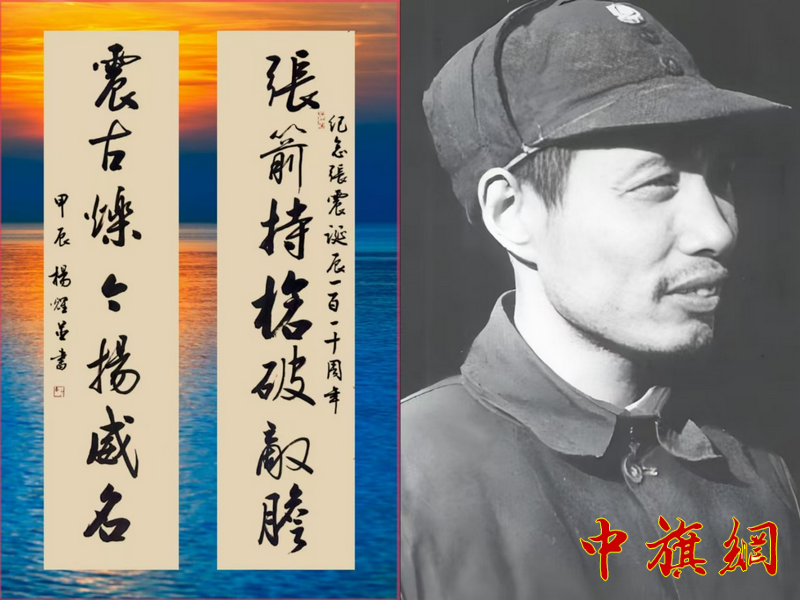 張箭持槍破敵膽
紀念張震誕辰一百一十周年
震古爍今揚威名
甲辰 楊 書
中旗網